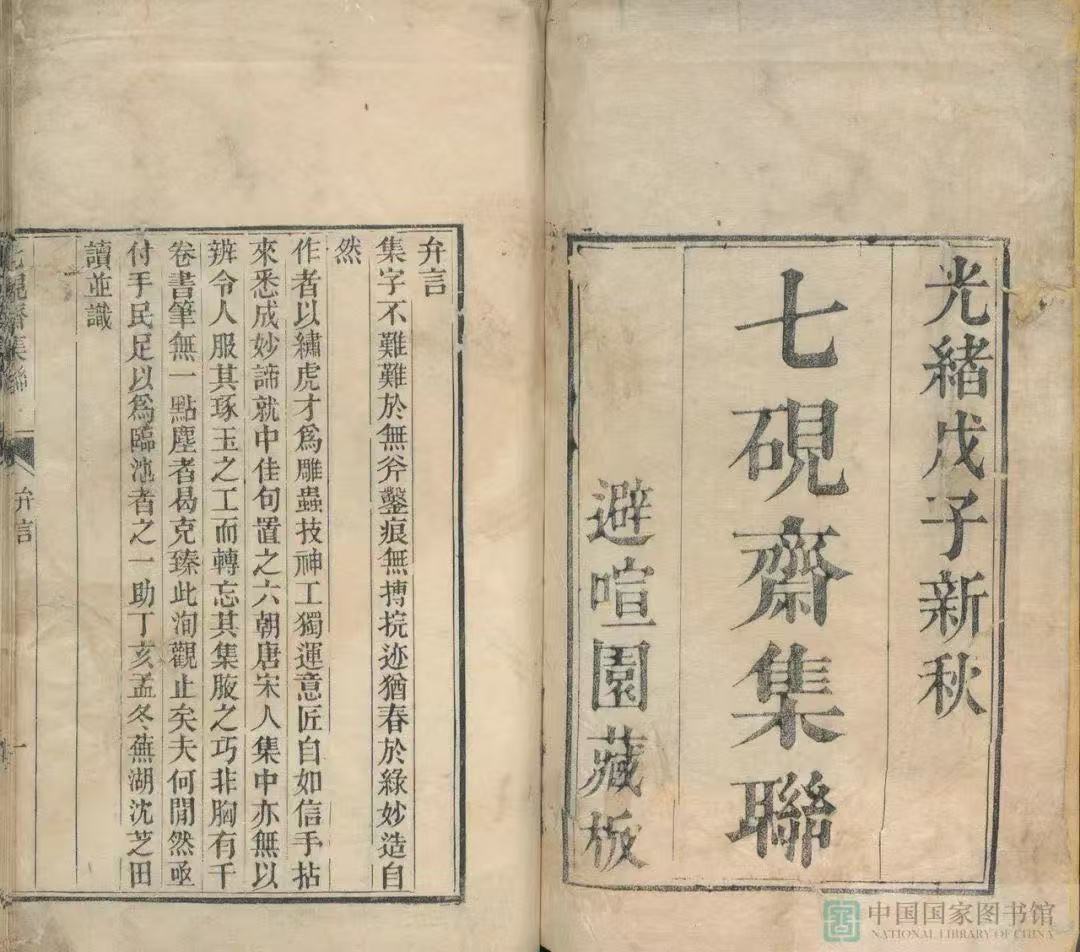 光緒戊子新秋
七硯齋集聯
避喧園藏板
弁言
集字不難難於無斧鑿痕無摶捖迹猶春於綠妙造自
然
作者以繡虎才爲雕蟲技神工獨運意匠自如信手拈
來悉成妙諦就中佳句置之六朝唐宋人集中亦無以
辨令人服其琢玉之工而轉忘其集腋之巧非胸有千
卷書筆無一點塵者曷克臻此洵觀止矣夫何閒然亟
付手民足以爲臨池者之一助丁亥孟冬蕪湖沈芝田
讀並識
七硯齋集聯
弁言
一
中国国家图书馆
NATIONAL LIBRARY OF CHINA